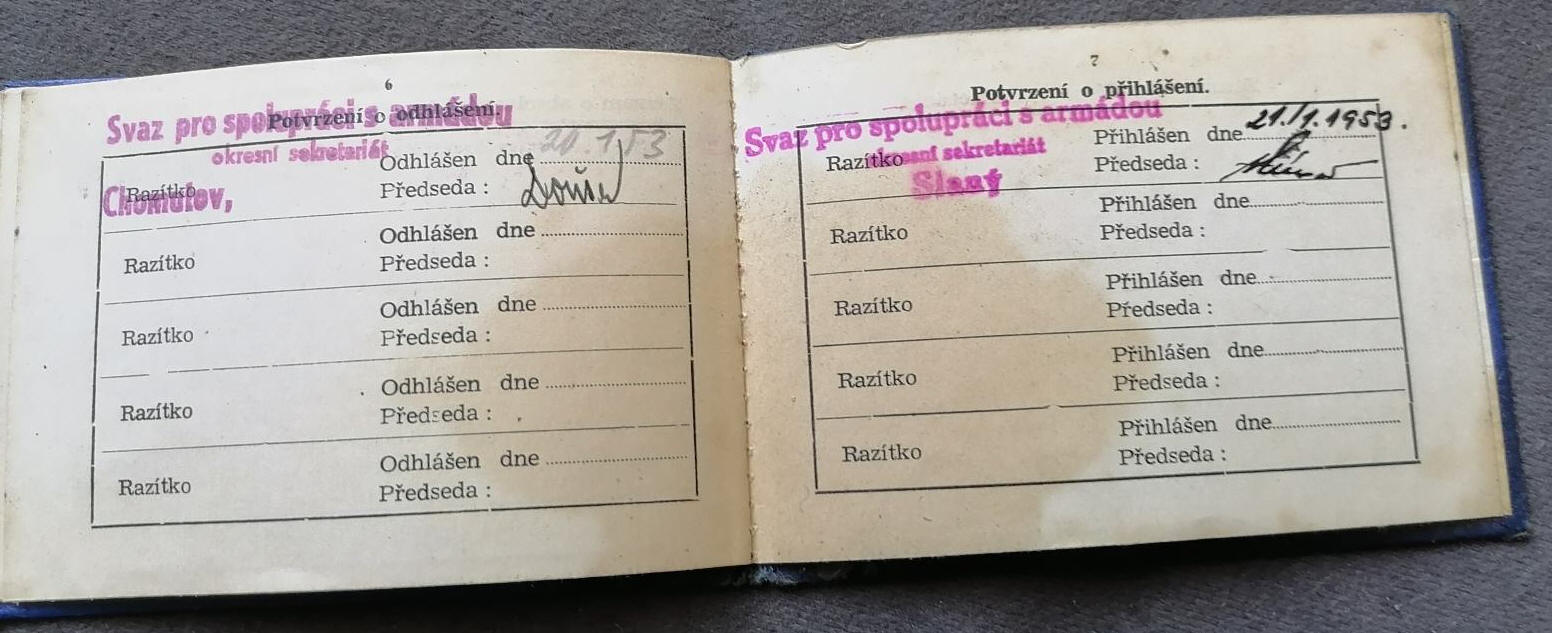 6
Potvrzení o odhlášení.
Svaz pro spolupráci s armádou
okresní sekretariát
Chomutov,
Razítko
Odhlášen dne 20.1.53
Předseda :
Razítko
Odhlášen dne
Předseda :
Razítko
Odhlášen dne
Předseda :
Razítko
Odhlášen dne
Předseda :
Razítko
Odhlášen dne
Předseda :
7
Potvrzení o přihlášení.
Svaz pro spolupráci s armádou
okresní sekretariát
Slaný
Razítko
Přihlášen dne 21./1.1953.
Předseda :
Razítko
Přihlášen dne
Předseda :
Razítko
Přihlášen dne
Předseda :
Razítko
Přihlášen dne
Předseda :
Razítko
Přihlášen dne
Předseda :